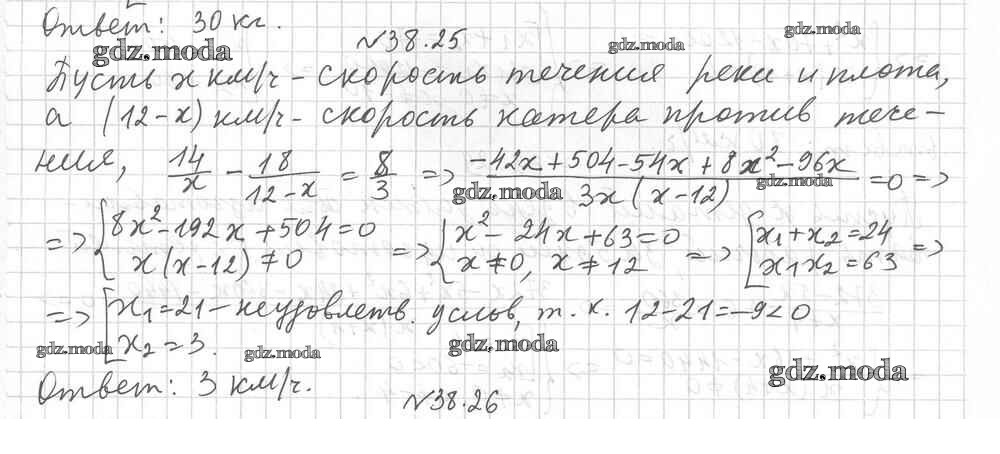 Ответ: 30 кг.
№38.25
gdz.moda gdz.moda gdz.moda
Пусть x км/ч - скорость течения реки и плота,
а (12-x) км/ч - скорость катера против тече-
ния, 14/x - 18/(12-x) = 8/3 => (-42x+504-54x+8x²-96x)/(3x(x-12)) = 0 =>
gdz.moda gdz.moda
=> { 8x²-192x+504=0 => { x²-24x+63=0 => [ x₁+x₂=24 =>
x(x-12)≠0 x≠0, x≠12 x₁x₂=63
=> [ x₁=21 - неудовлетв. услов, т.к. 12-21=-9<0
x₂=3.
gdz.moda gdz.moda gdz.moda gdz.moda
Ответ: 3 км/ч.
№38.26